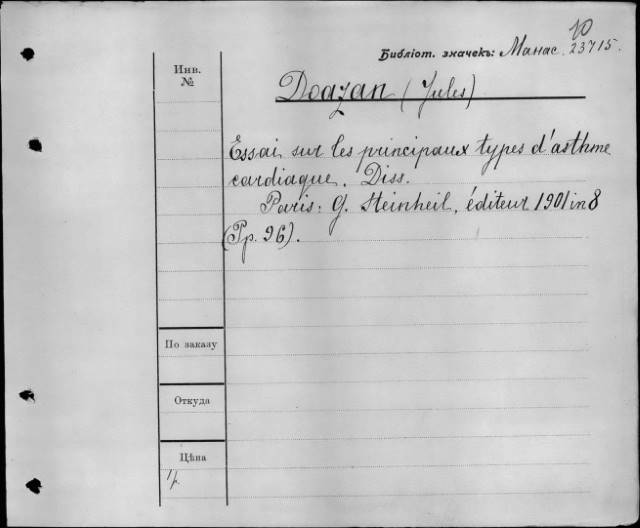 10
Библіот. значекъ: Манас. 23715.
Инв.
№
Doazan (Jules)
Essai sur les principaux types d'asthme
cardiaque. Diss.
Paris: G. Steinheil, éditeur 1901 in 8
(Pp. 96).
По заказу
Откуда
Цѣна